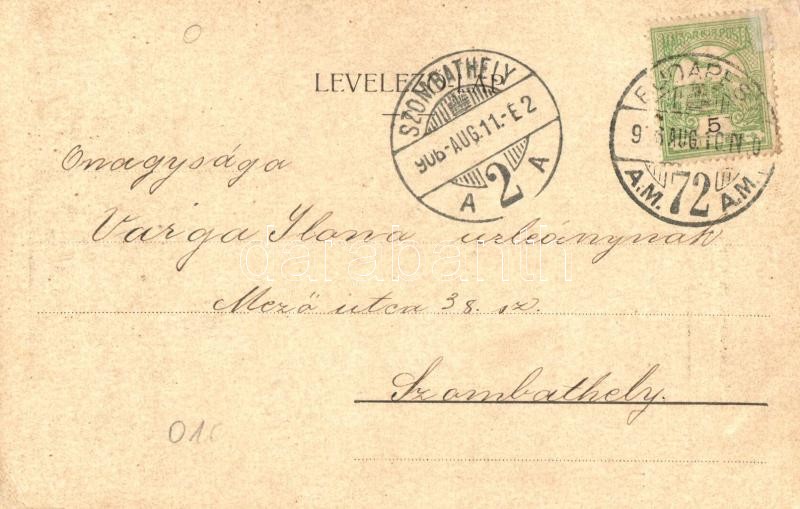 MAGYAR KIR. POSTA
5
LEVELEZŐ-LAP
SZOMBATHELY
906-AUG.11.-E2
A 2 A
BUDAPEST
AUG.10
A.M. 72 A.M.
Onagysága
Varga Ilona urleánynak
Mező utca 38. sz.
Szombathely.
darabanth